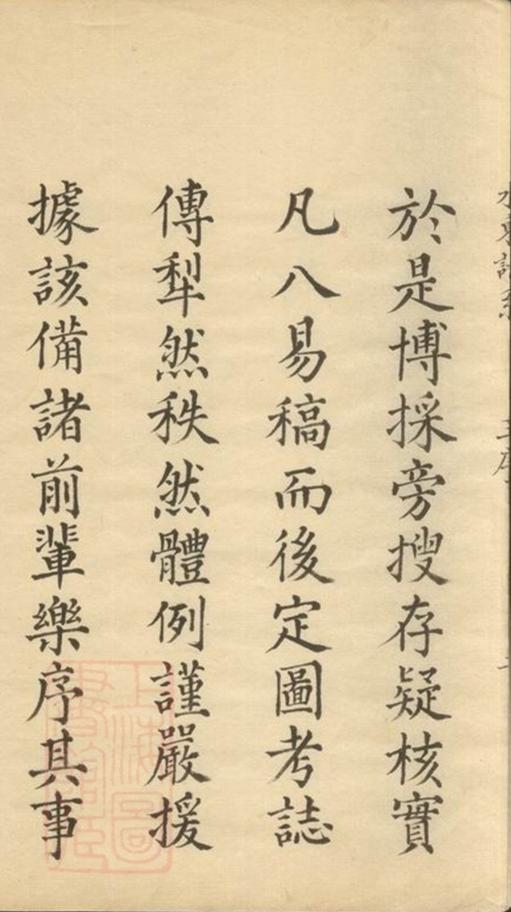 於是博採旁搜存疑核實
凡八易稿而後定圖考誌
傳犁然秩然體例謹嚴援
據該備諸前輩樂序其事